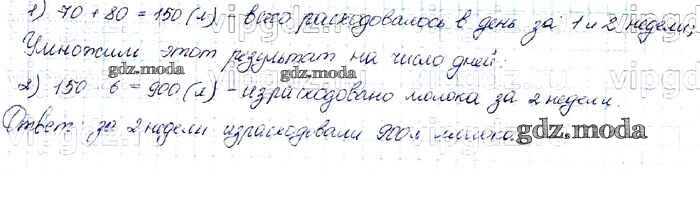 1) 70 + 80 = 150 (л) - всего расходовалось в день за 1 и 2 недели;
Умножим этот результат на число дней:
gdz.moda
2) 150 · 6 = 900 (л) - израсходовано молока за 2 недели.
gdz.moda
Ответ: за 2 недели израсходовали 900 л молока.
gdz.moda